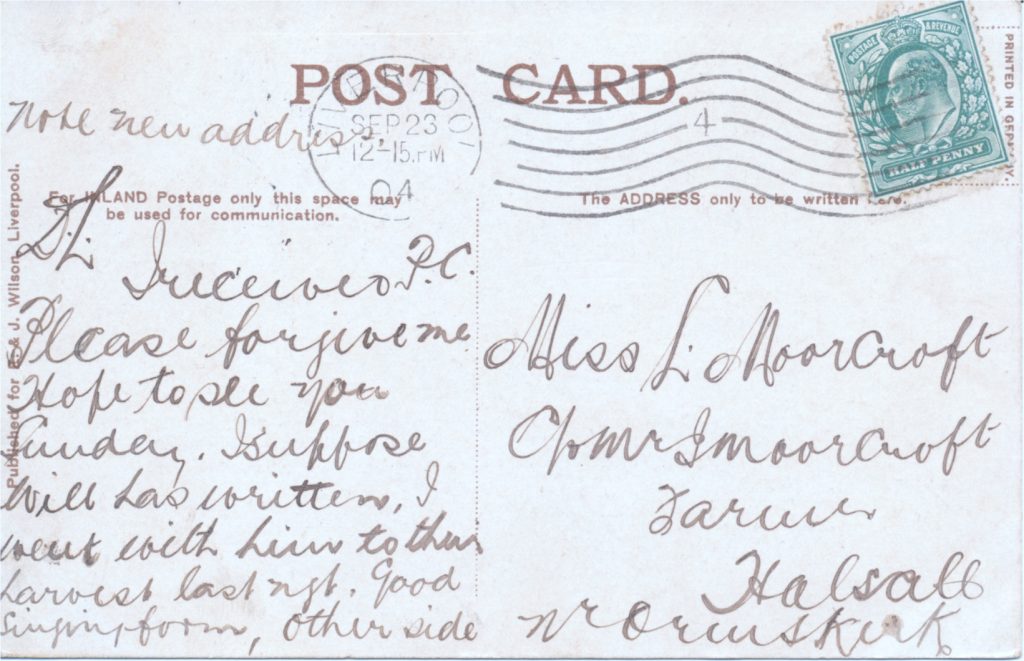 POST CARD.
Note new address.
LIVERPOOL
SEP 23
12-15.PM
04
4
POSTAGE & REVENUE
HALFPENNY
PRINTED IN GERMANY.
For INLAND Postage only this space may
be used for communication.
The ADDRESS only to be written here.
Published for E. & J. Wilson, Liverpool.
D.L.
I received P.C.
Please forgive me
Hope to see you
Sunday. I suppose
Will has written, I
went with him to their
harvest last ngt. Good
singing &
other side
Miss L. Moorcroft
C/o Mr J Moorcroft
Farmer
Halsall
Nr Ormskirk